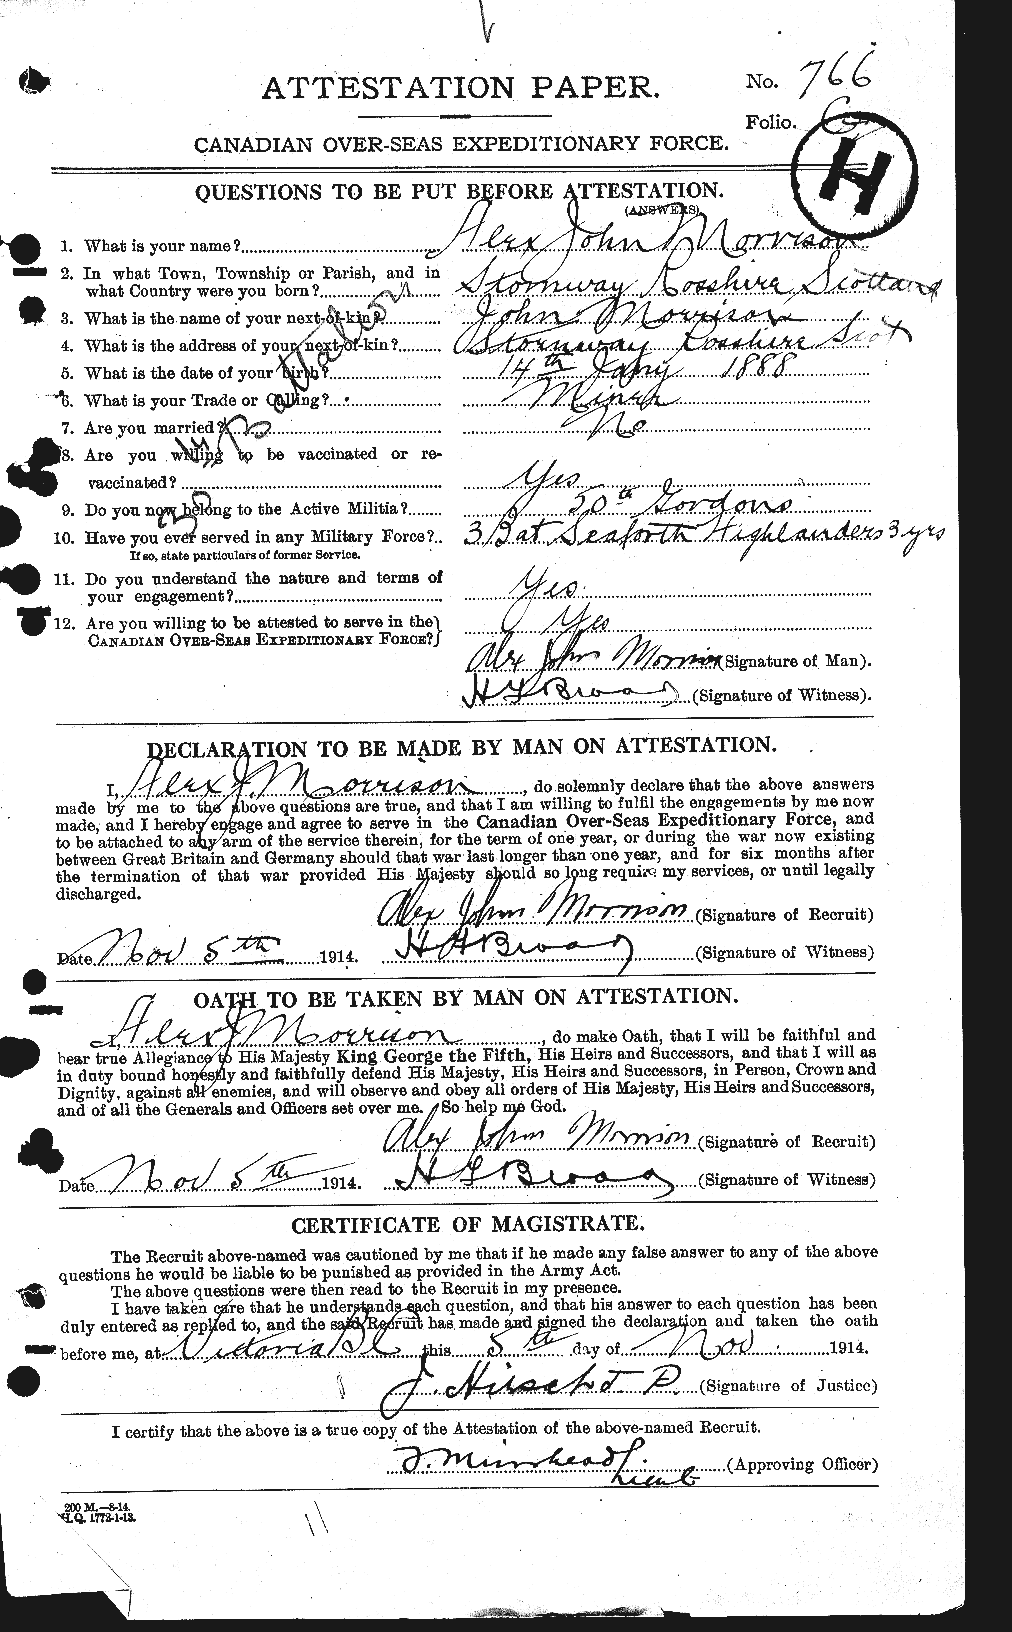 ATTESTATION PAPER.
No. 766
Folio.
CANADIAN OVER-SEAS EXPEDITIONARY FORCE.
H
QUESTIONS TO BE PUT BEFORE ATTESTATION.
(ANSWERS)
1. What is your name? Alex John Morrison
2. In what Town, Township or Parish, and in
what Country were you born? Stornway Rosshire Scotland
3. What is the name of your next-of-kin? John Morrison
4. What is the address of your next-of-kin? Stornway Rosshire Scot
5. What is the date of your birth? 14th Jany 1888
6. What is your Trade or Calling? Miner
7. Are you married? No
8. Are you willing to be vaccinated or re-
vaccinated? Yes
9. Do you now belong to the Active Militia? 50th Gordons
10. Have you ever served in any Military Force? 3 Bat Seaforth Highlanders 3 yrs
If so, state particulars of former Service.
11. Do you understand the nature and terms of
your engagement? Yes
12. Are you willing to be attested to serve in the
CANADIAN OVER-SEAS EXPEDITIONARY FORCE? Yes
Battalion
Alex John Morrison (Signature of Man).
(Signature of Witness).
DECLARATION TO BE MADE BY MAN ON ATTESTATION.
I, Alex J. Morrison, do solemnly declare that the above answers
made by me to the above questions are true, and that I am willing to fulfil the engagements by me now
made, and I hereby engage and agree to serve in the Canadian Over-Seas Expeditionary Force, and
to be attached to any arm of the service therein, for the term of one year, or during the war now existing
between Great Britain and Germany should that war last longer than one year, and for six months after
the termination of that war provided His Majesty should so long require my services, or until legally
discharged.
Alex John Morrison (Signature of Recruit)
Date Nov 5th 1914. (Signature of Witness)
OATH TO BE TAKEN BY MAN ON ATTESTATION.
I, Alex J Morrison, do make Oath, that I will be faithful and
bear true Allegiance to His Majesty King George the Fifth, His Heirs and Successors, and that I will as
in duty bound honestly and faithfully defend His Majesty, His Heirs and Successors, in Person, Crown and
Dignity, against all enemies, and will observe and obey all orders of His Majesty, His Heirs and Successors,
and of all the Generals and Officers set over me. So help me God.
Alex John Morrison (Signature of Recruit)
Date Nov 5th 1914. (Signature of Witness)
CERTIFICATE OF MAGISTRATE.
The Recruit above-named was cautioned by me that if he made any false answer to any of the above
questions he would be liable to be punished as provided in the Army Act.
The above questions were then read to the Recruit in my presence.
I have taken care that he understands each question, and that his answer to each question has been
duly entered as replied to, and the said Recruit has made and signed the declaration and taken the oath
before me, at Victoria BC this 5th day of Nov 1914.
J. Hirsch J. P. (Signature of Justice)
I certify that the above is a true copy of the Attestation of the above-named Recruit.
J. Muirhead Lieut (Approving Officer)
200 M.—8-14.
H.Q. 1772-1-13.